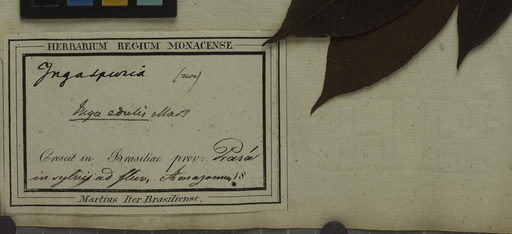 HERBARIUM REGIUM MONACENSE
Inga spuria (non)
Inga edulis Mart
Crescit in Brasiliae prov: Pará
in sylvis ad fluv. Amazonum, 18
Martius Iter Brasiliense.